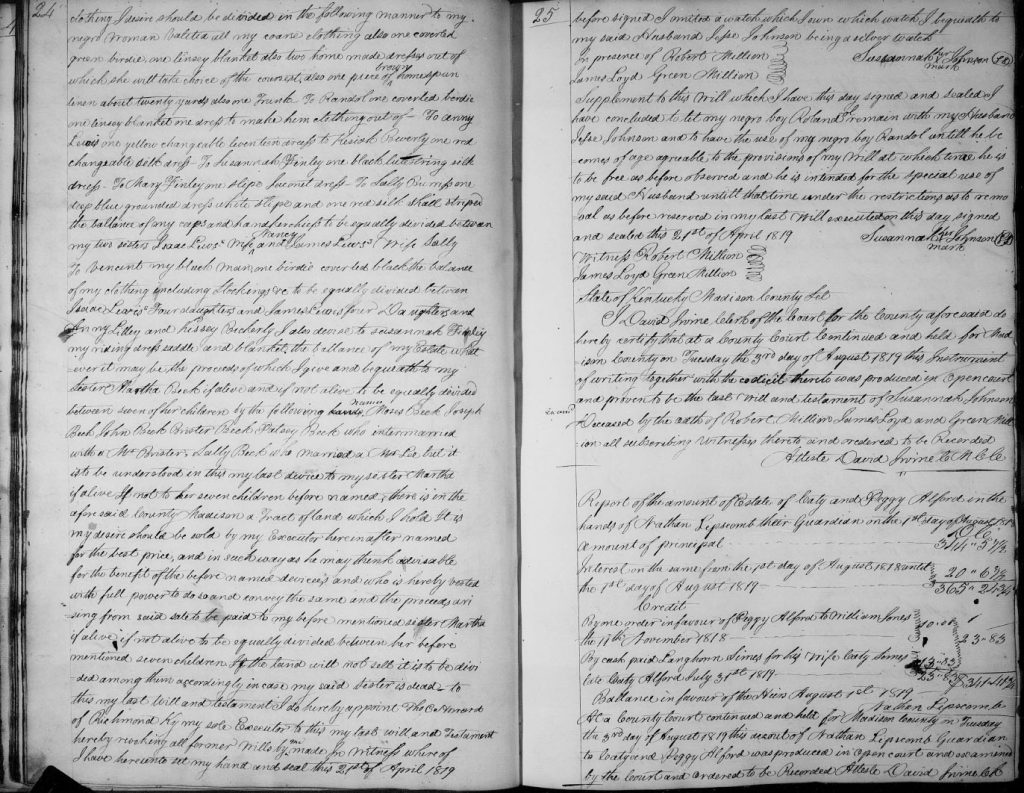 24
clothing I desire should be divided in the following manner to my
negro Woman all my coarse clothing also one coverled
green birdies one linsey blanket also two home made dresses out of
which she will take choice of the coursest, also one piece of brown homespun
linen about twenty yards also one Trunk To Randol one coverled birdie
one linsey blanket one dress to make him clothing out of - To anny
Lewis one yellow changeable leventen dress to one red
changeable silk dress - To Susannah Finley one black lustring silk
dress - To Mary Finley one stripe dress - To Sally one
deep blue grounded dress white stripe and one red silk shall striped
the ballance of my caps and handkerchiefs to be equally divided between
my two sisters Isaac Lewis Wife Nancy and James Lewis Wife Sally
To Vencent my black man one birdie coverled black the balance
of my clothing including Stockings &c to be equally divided between
Isaac Lewis Four daughters and James Lewis four Daughters and
Anny Lilley and I also devise to Susannah Finley
my riding dress saddle and blanket, the ballance of my Estate what
ever it may be the proceeds of which I give and bequeath to my
sister Martha Beck if alive and if not alive to be equally divided
between seven of her children by the following names Moses Beck Joseph
Beck John Beck Brister Beck Beck who intermarried
with a Mr Brister, Sally Beck who married a Mr but it
is to be understood in this my last device to my sister Martha
if alive If not to her seven children before named, there is in the
afore said County Madison a Tract of land which I hold It is
my desire should be sold by my Executor herein after named
for the best price, and in such way as he may think advisable
for the benefit of the before named devices and who is hereby vested
with full power to do so and convey the same and the proceeds ari
sing from said sale to be paid to my before mentioned sister Martha
if alive, if not alive to be equally divided between her before
mentioned seven children If the land will not sell it is to be divi
ded among them accordingly in case my said sister is dead - to
this my last will and testament I do hereby appoint Tho C Howard
of Richmond Ky my sole Executor to this my last will and Testament
hereby revoking all former Wills by me made In Witness where of
I have hereunto set my hand and seal this 21st of April 1819
25
before signed I omited a watch which I own which watch I bequeath to
my said Husband Jesse Johnson being a silver watch
In presence of Robert Million Susannah her mark Johnson
James Loyd Green Million
Supplement to this Will which I have this day signed and sealed I
have concluded to let my negro boy Roland remain with my Husband
Jesse Johnson and to have the use of my negro boy Randol untill he be
comes of age agreable to the provisions of my Will at which time he is
to be free as before observed and he is intended for the special use of
my said Husband untill that time under the restrictions as to remo
val as before reserved in my last Will executed on this day signed
and sealed this 21st of April 1819 Susannah her mark Johnson
Witness Robert Million
James Loyd Green Million
State of Kentucky Madison County Sct
I David Irvine Clerk of the Court for the County aforesaid do
hereby certify that at a County Court Continued and held for Mad
ison County on Tuesday the 3rd day of August 1819 this Instrument
of writing together with the codicil thereto was produced in Open court
and proven to be the last Will and testament of Susannah Johnson
Deceased by the oath of Robert Million James Loyd and Green Mill
ion all subscribing Witnesses thereto and ordered to be Recorded
Atteste David Irvine C M C C
Report of the amount of Estate of Caty and Peggy Alford in the
hands of Nathan Lipscomb their Guardian on the 1st day of August 1819
D C
Amount of principal 344 " 57½
Interest on the same from the 1st day of August 1818 until
the 1st day of August 1819 - 20 " 67½
365 " 24¾
Credit
By one order in favour of Peggy Alford to William Jones
the 17th November 1818 10.00
23 - 83
By cash paid Langhorn Simes for his Wife Caty Simes
late Caty Alford July 31st 1819 13 - 83
23 - 83 $ 341 - 41¾
Ballance in favour of the Heirs August 1st 1819
Nathan Lipscomb
At a County Court continued and held for Madison County on Tuesday
the 3rd day of August 1819 this account of Nathan Lipscomb Guardian
to Caty and Peggy Alford was produced in Open court and examined
by the Court and ordered to be Recorded Atteste David Irvine Clk